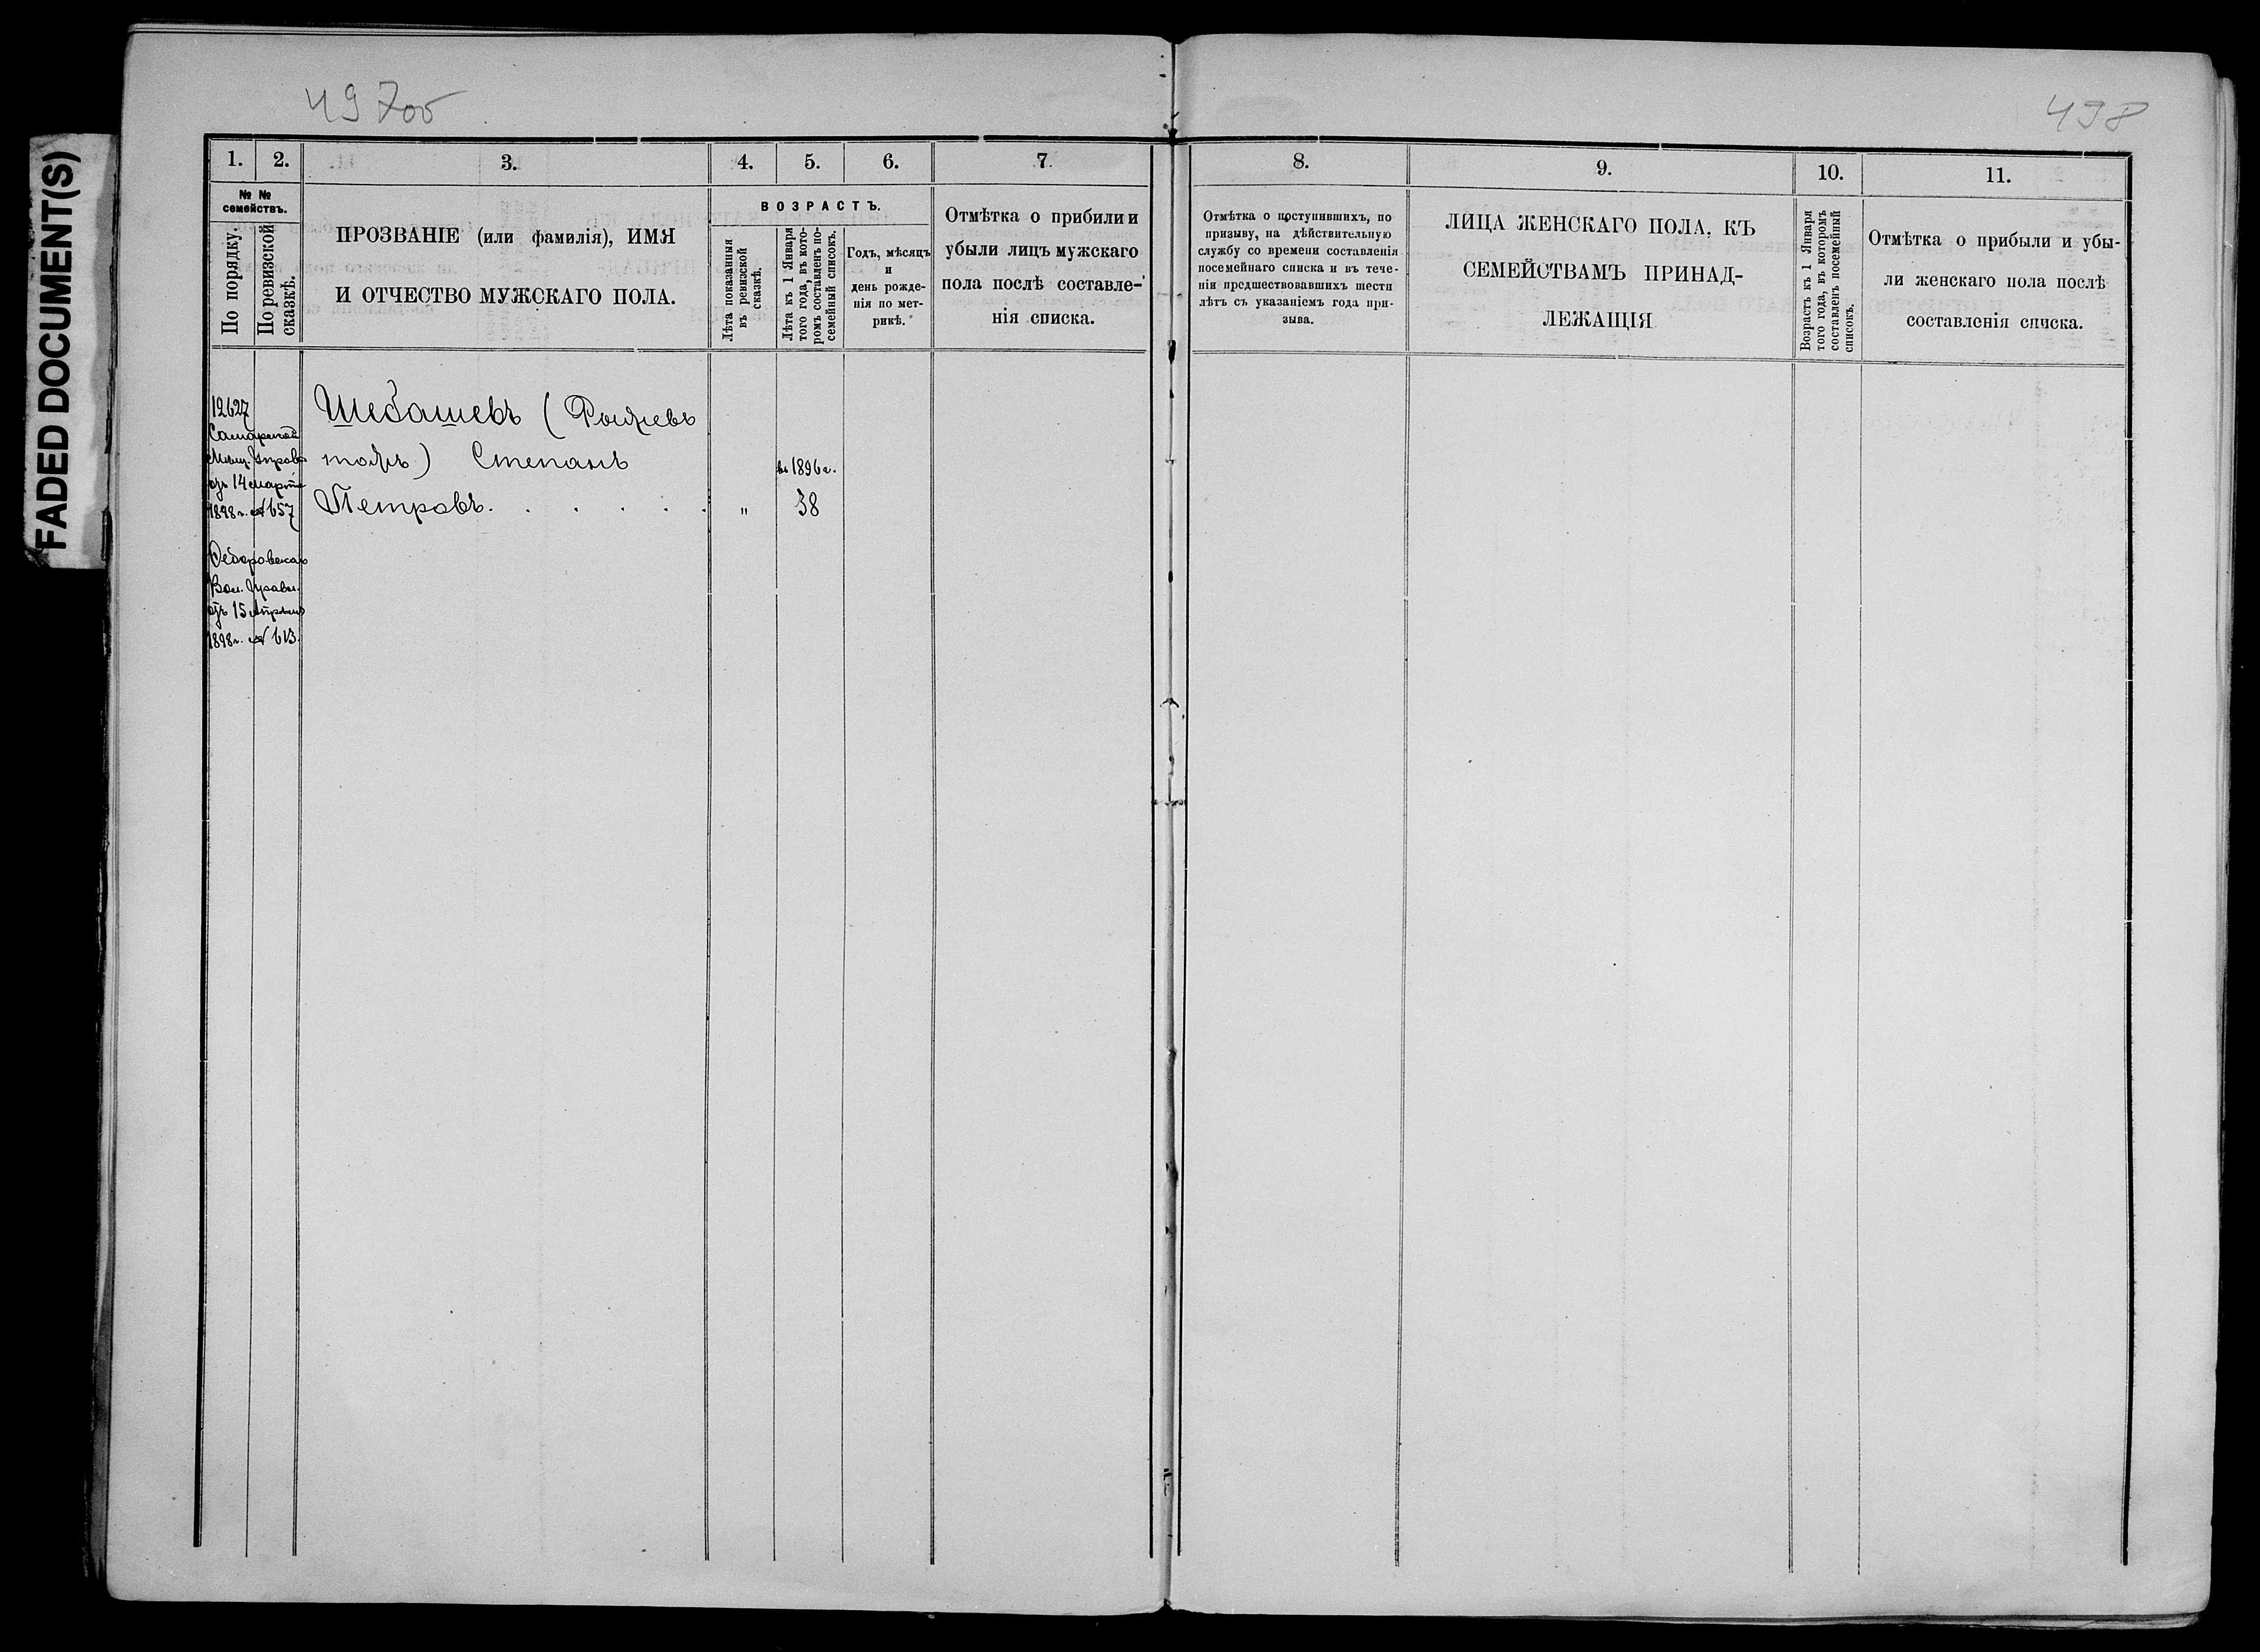 FADED DOCUMENT(S)
497об
498
1.
2.
3.
4.
5.
6.
7.
8.
9.
10.
11.
№ №
семействъ.
По порядку.
По ревизской
сказкѣ.
ПРОЗВАНІЕ (или фамилія), ИМЯ
И ОТЧЕСТВО МУЖСКАГО ПОЛА.
ВОЗРАСТЪ.
Лѣта показанныя
въ ревизской
сказкѣ.
Лѣта къ 1 Января
того года, въ кото-
ромъ составленъ по-
семейный списокъ.
Годъ, мѣсяцъ
и
день рожде-
нія по мет-
рикѣ.
Отмѣтка о прибыли и
убыли лицъ мужскаго
пола послѣ составле-
нія списка.
Отмѣтка о поступившихъ, по
призыву, на дѣйствительную
службу со времени составленія
посемейнаго списка и въ тече-
ніи предшествовавшихъ шести
лѣтъ съ указаніемъ года при-
зыва.
ЛИЦА ЖЕНСКАГО ПОЛА, КЪ
СЕМЕЙСТВАМЪ ПРИНАД-
ЛЕЖАЩІЯ
Возрастъ къ 1 Января
того года, въ которомъ
составленъ посемейный
списокъ.
Отмѣтка о прибыли и убы-
ли женскаго пола послѣ
составленія списка.
12627
Самарской
Мѣщ. Управы
отъ 14 марта
1898 г. № 657
Ѳедоровскаго
Вол. Правл.
отъ 15 Апрѣля
1898 г. № 613.
Шебашевъ (Рыжевъ
тожъ) Степанъ
Петровъ. . . . . .
"
въ 1896 г.
38